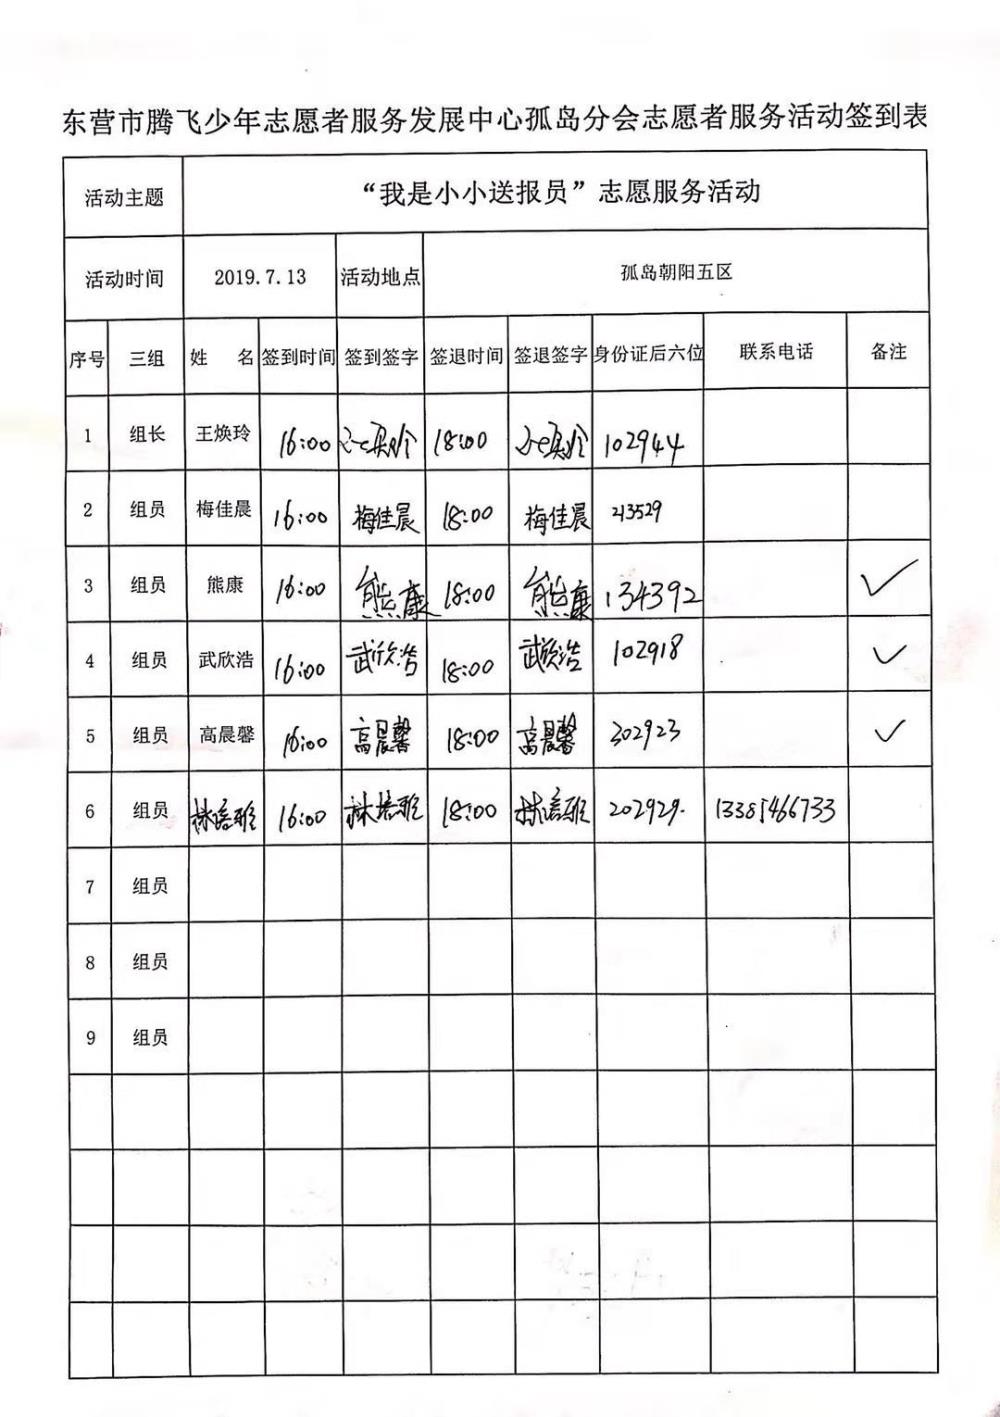 东营市腾飞少年志愿者服务发展中心孤岛分会志愿者服务活动签到表
活动主题 “我是小小送报员”志愿服务活动
活动时间 2019.7.13 活动地点 孤岛朝阳五区
序号 三组 姓 名 签到时间 签到签字 签退时间 签退签字 身份证后六位 联系电话 备注
1 组长 王焕玲 16:00 王焕玲 18:00 王焕玲 102944
2 组员 梅佳晨 16:00 梅佳晨 18:00 梅佳晨 213529
3 组员 熊康 16:00 熊康 18:00 熊康 134392 ✓
4 组员 武欣浩 16:00 武欣浩 18:00 武欣浩 102918 ✓
5 组员 高晨馨 16:00 高晨馨 18:00 高晨馨 302923 ✓
6 组员 16:00 18:00 202929. 13385466733
7 组员
8 组员
9 组员